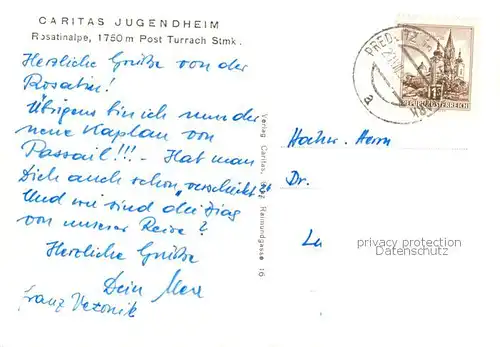 CARITAS JUGENDHEIM
Rosatinalpe, 1750 m Post Turrach Stmk.
Herzliche Grüße von der
Rosatin!
Übrigens bin ich nun der
neue Kaplan von
Passail!!! - Hat man
Dich auch schon "verschickt"?
Und wie sind die Diag
von unserer Reise?
Herzliche Grüße
Dein
Franz
Verlag Caritas, Graz, Raimundgasse 16
PREDLITZ
a
REPUBLIK ÖSTERREICH
Hochw. Herrn
Dr.
privacy protection
Datenschutz